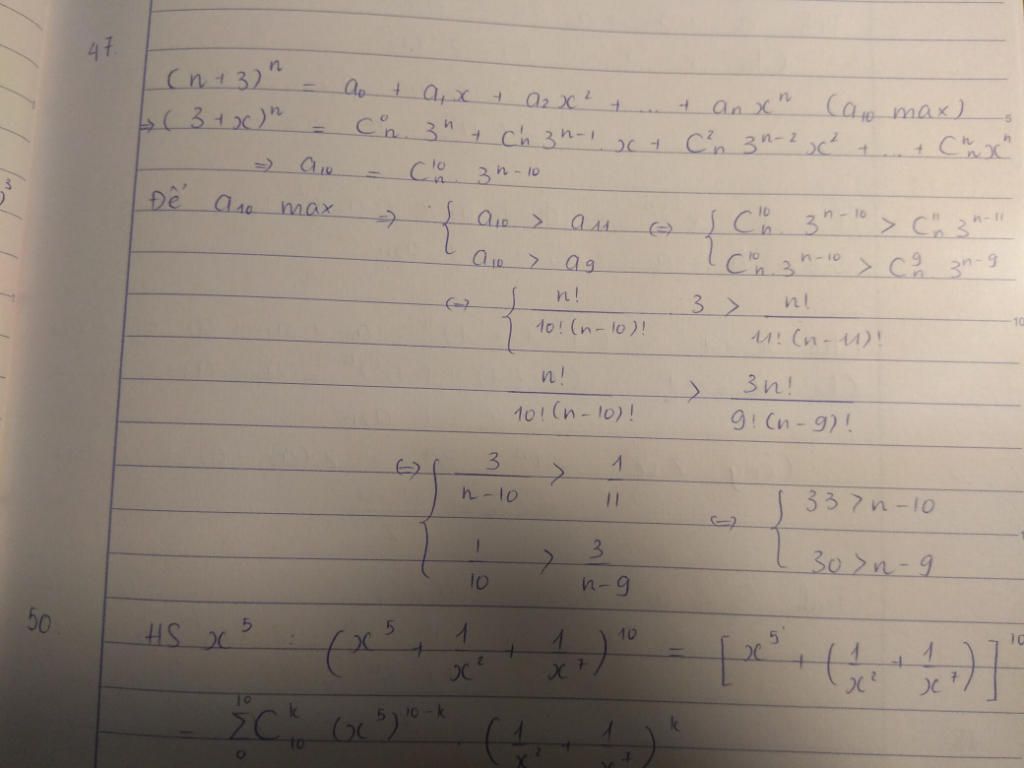 47.
(n + 3)^n = a₀ + a₁x + a₂x² + ... + aₙxⁿ (a₁₀ max)
⇒ (3 + x)^n = C⁰ₙ 3ⁿ + C¹ₙ 3ⁿ⁻¹ x + C²ₙ 3ⁿ⁻² x² + ... + Cⁿₙ xⁿ
⇒ a₁₀ = C¹⁰ₙ 3ⁿ⁻¹⁰
Để a₁₀ max ⇒ { a₁₀ > a₁₁ ⇔ { C¹⁰ₙ 3ⁿ⁻¹⁰ > C¹¹ₙ 3ⁿ⁻¹¹
a₁₀ > a₉ C¹⁰ₙ 3ⁿ⁻¹⁰ > C⁹ₙ 3ⁿ⁻⁹
⇔ { n!/(10!(n-10)!) 3 > n!/(11!(n-11)!)
n!/(10!(n-10)!) > 3n!/(9!(n-9)!)
⇔ { 3/(n-10) > 1/11 ⇔ { 33 > n-10
1/10 > 3/(n-9) 30 > n-9
50. HS x⁵ : (x⁵ + 1/x² + 1/x⁷)¹⁰ = [x⁵ + (1/x² + 1/x⁷)]¹⁰
= ¹⁰Σ₀ Cᵏ₁₀ (x⁵)¹⁰⁻ᵏ . (1/x² + 1/x⁷)ᵏ